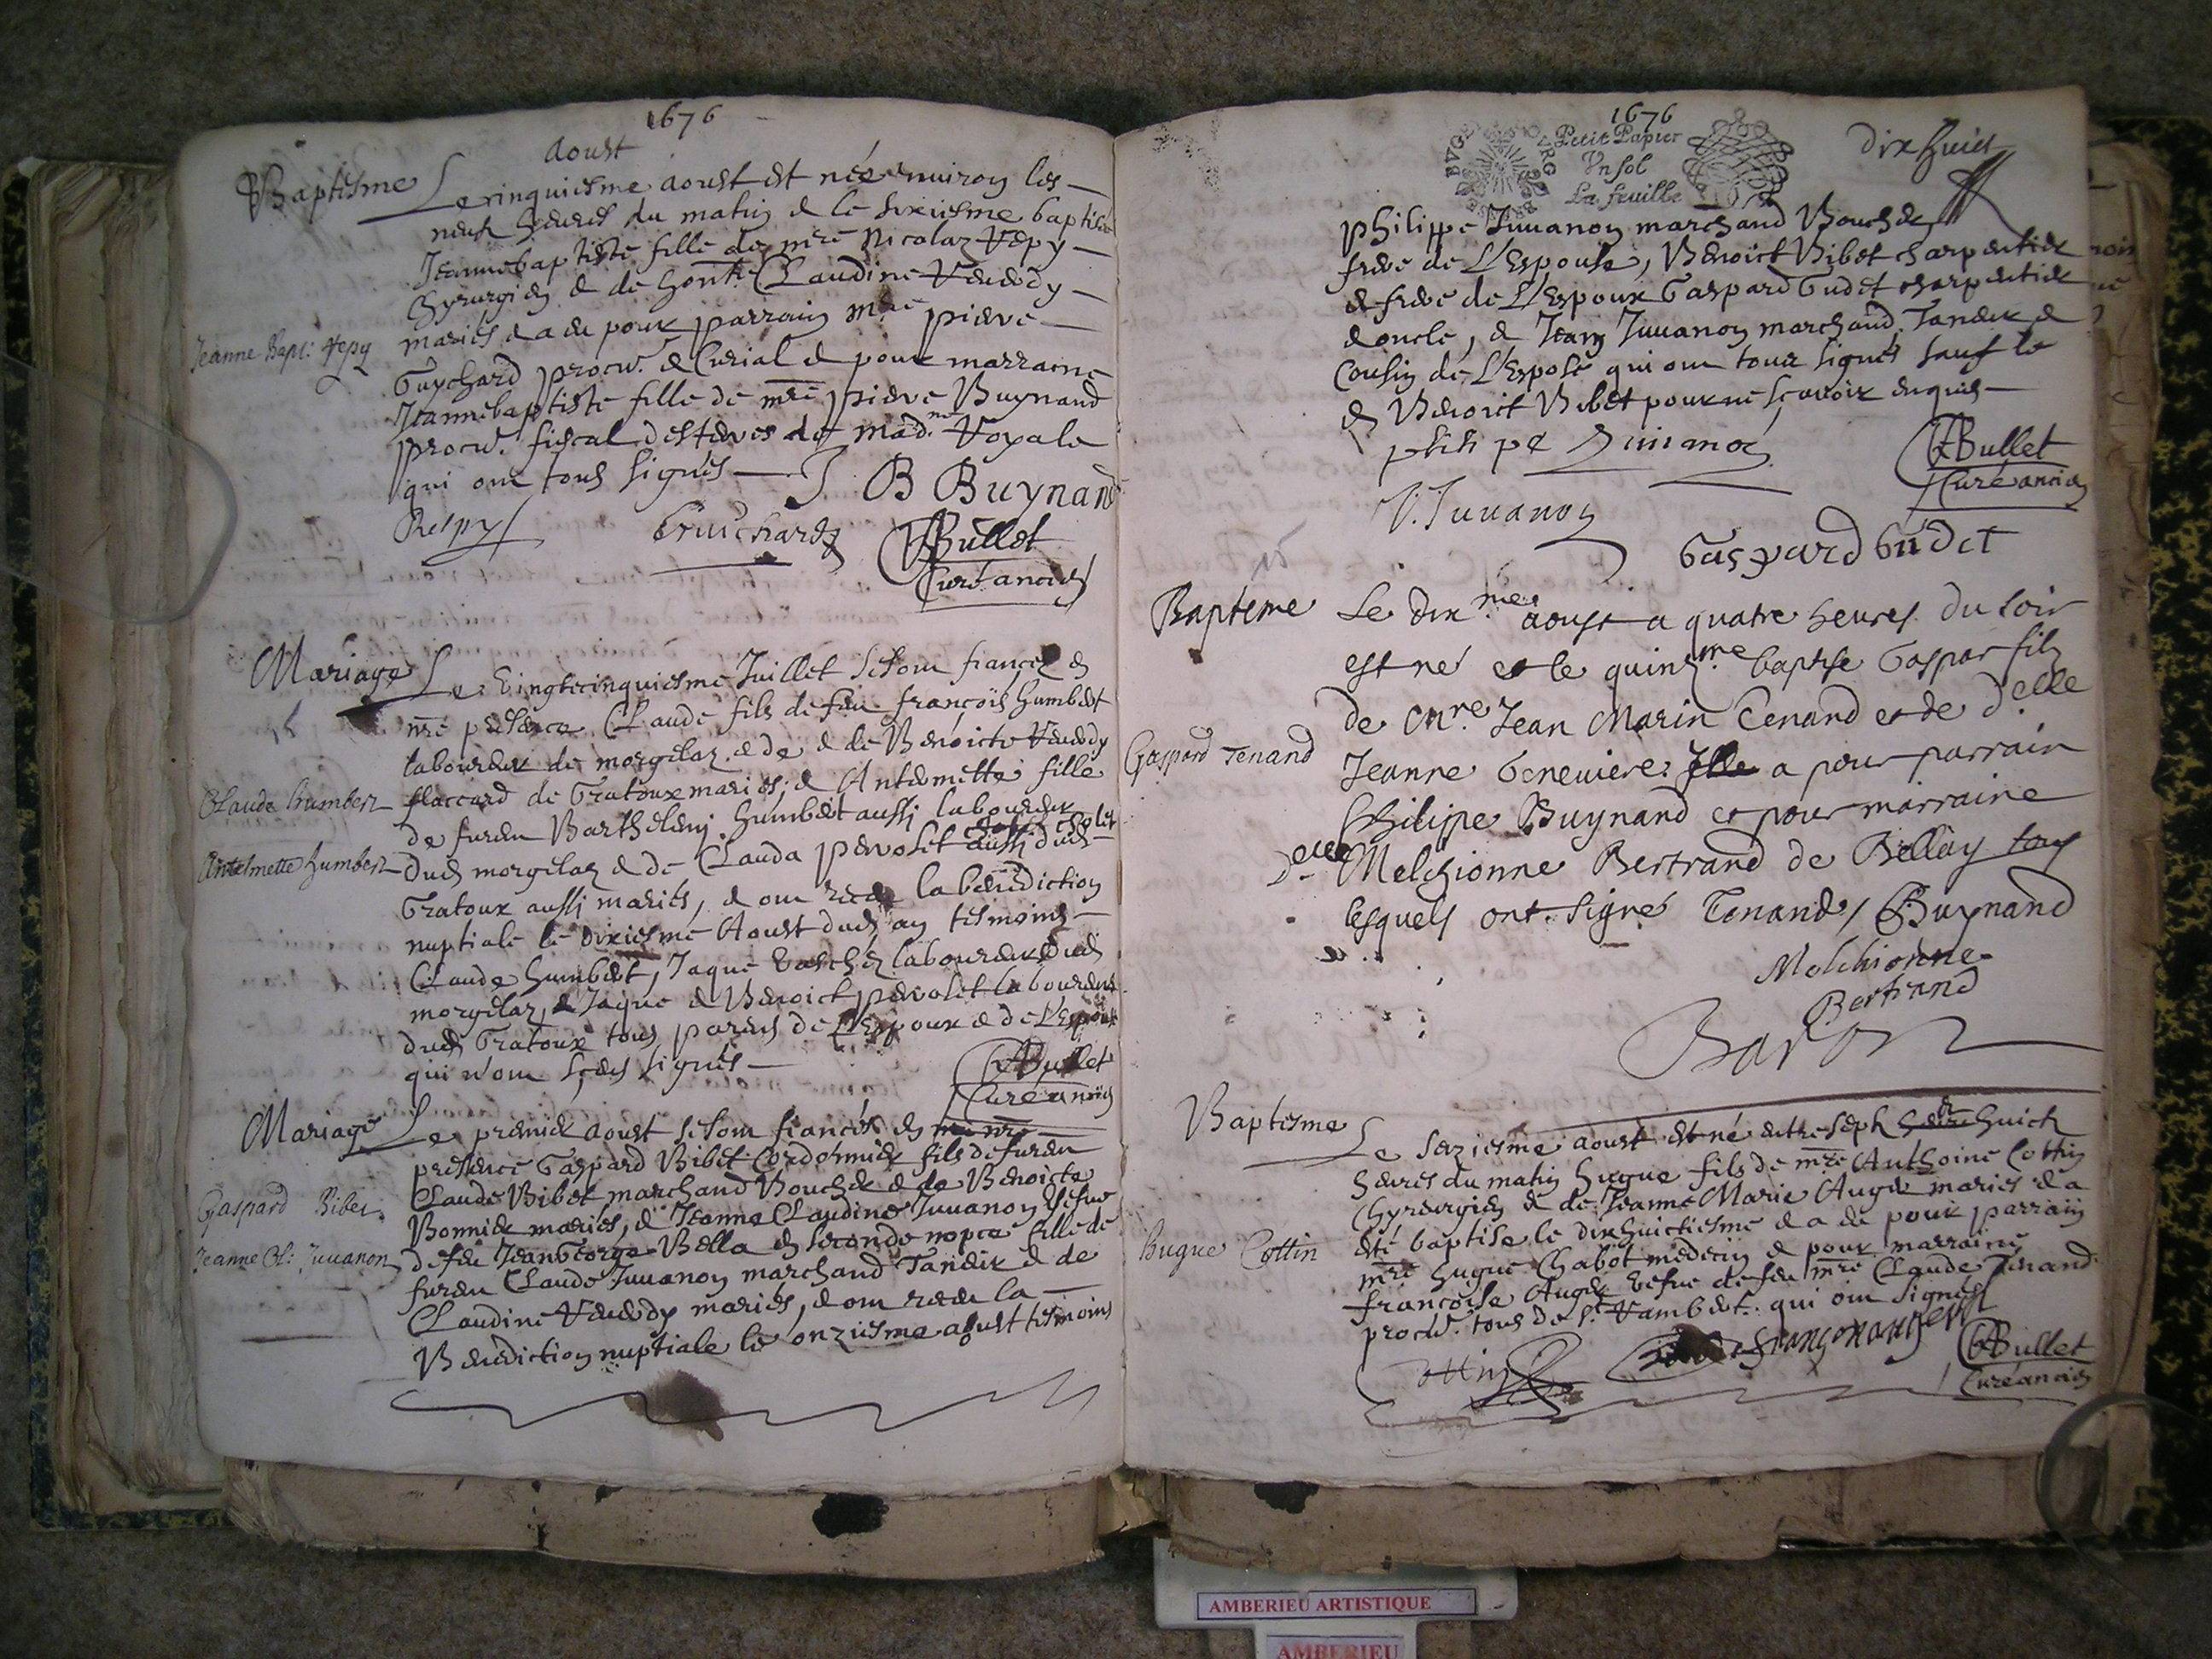 1676
Aoust
Baptesme Le cinquiesme aoust est née environ les
neuf heures du matin & le sixiesme baptisée
Jeannebaptiste fille de mre Nicolas Vepy
Chyrurgien & de honte Claudine Venendy
mariés & a eu pour parrain mre pierre
Jeanne Bapt: Vepy
Guychard procur. & Curial & pour marraine
Jeannebaptiste fille de mre pierre Buynand
procur. fiscal des terres de madme Royale
qui ont tous signés J B Buynand
Guichard
Bullet
Curé ancien
Mariage Le Vingtcinquiesme Juillet se sont fiancés en
nre presence Claude fils de feu françois humbert
laboureur de morgelas & de Benoicte
flaccard de Gratoux mariés, & Antelmette fille
Claude humbert
de furent Barthelemy humbert aussi laboureur
Antelmette humbert
dud. morgelas & de Clauda pervolet aussi dud.
Gratoux aussi mariés, & ont receu la benediction
nuptiale le dixiesme Aoust dud. an tesmoins
Claude humbert, Jaque laboureur dud.
morgelas, & Jaque & Benoict pervolet laboureurs
dud. Gratoux tous parens de L'Espoux & de L'Espouse
qui n'ont sceu signés
Bullet
Curé ancien
Mariage Le premier aoust se sont fiancés en nre
presence Gaspard Bibet Cordonnier fils de furent
Claude Bibet marchand Boucher & de Benoicte
Gaspard Bibet
Bonnier mariés, & Jeanne Claudine Juvanon vefve
Jeanne Cl: Juvanon
de feu Jean George Bella en seconde nopce fille de
furent Claude Juvanon marchand Taneur & de
Claudine Venendy mariés, & ont receu la
Benediction nuptiale le onziesme aoust tesmoins
1676
Petit Papier
Un sol
La feuille
Dix huict
philippe Juvanon marchand Boucher
frere de L'Espouse, Benoict Bibet charpentier
& frere de L'Espoux Gaspard Gudet charpentier
& oncle, & Jean Juvanon marchand Taneur &
Cousin de L'Espose qui ont tous signés sauf le
d. Benoict Bibet pour ne sçavoir enquis
J. Juvanon
Bullet
Curé ancien
Gaspard Gudet
Bapteme Le dixme aoust a quatre heures du soir
est né et le quinzme baptisé Gaspar fils
de mre Jean Marin Tenand et de delle
Gaspard Tenand
Jeanne Genevieve. Elle a pour parrain
Philippe Buynand et pour marraine
Delle Melchionne Bertrand de Bellay tous
lesquels ont signé Tenand / Buynand
Melchionne
Bertrand
Baron
Baptesme
Le seziesme aoust est né entre sept & huict
heures du matin hugue fils de mre Anthoine Cottin
Chyrurgien & de Jeanne Marie Auger mariés & a
Hugue Cottin
été baptisé le dixhuictiesme & a eu pour parrain
mre hugue Chabot medecin & pour marraine
françoise Auger vefve de feu mre Claude Tenand
procur. tous de St Rambert qui ont signés
Cottin
Bullet
Curé ancien
AMBERIEU ARTISTIQUE
AMBERIEU